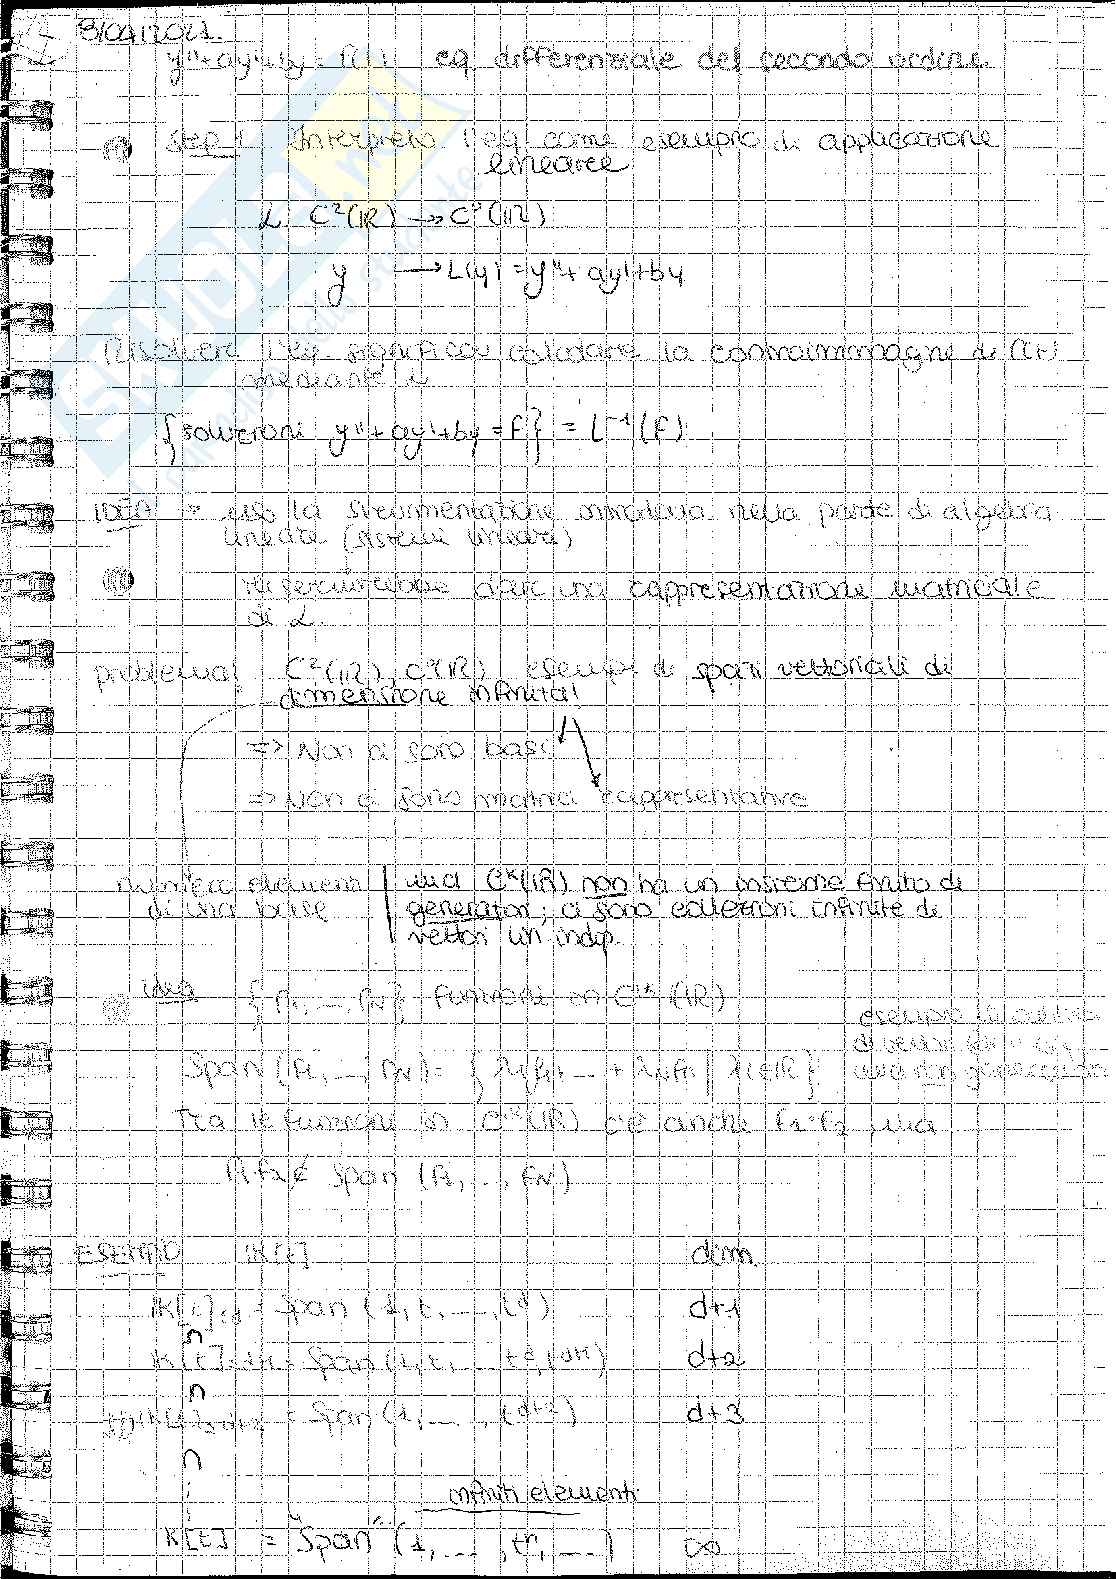 y''+ay'+by = f(t) eq. differenziale del secondo ordine
Step 1 Interpreto l'eq come esempio di applicazione
lineare
L C²(IR) → C⁰(IR)
y → L(y) = y''+ay'+by
Risolvere l'eq. significa calcolare la controimmagine di f(t)
mediante L
{soluzioni y''+ay'+by = f} = L⁻¹(f)
IDEA → uso la strumentazione introdotta nella parte di algebra
lineare (sistemi lineari)
dare una rappresentazione matriciale
di L.
problema! C²(IR), C⁰(IR) esempi di spazi vettoriali di
dimensione infinita!
=> Non ci sono basi
=> Non ci sono matrici rappresentative
numero elementi
di una base
una C^k(IR) non ha un insieme finito di
generatori; ci sono collezioni infinite di
vettori lin indip.
idea {f1, ..., fN} funzioni in C^k(IR)
esempio
di vettori
Span (f1, ..., fN) = {λ1f1+ ... + λNfN | λi∈IR}
Tra le funzioni in C^k(IR) c'è anche f1·f2, ma
f1·f2 ∉ Span (f1, ..., fN)
ESEMPIO IK[t] dim
IK[t]≤d = Span (1, t, ..., t^d) d+1
∩
IK[t]≤d+1 = Span (1, t, ... t^d, t^d+1) d+2
∩
IK[t]≤d+2 = Span (1, ..., t^d+2) d+3
∩
infiniti elementi
K[t] = "Span" (1, ..., t^n, ...) ∞